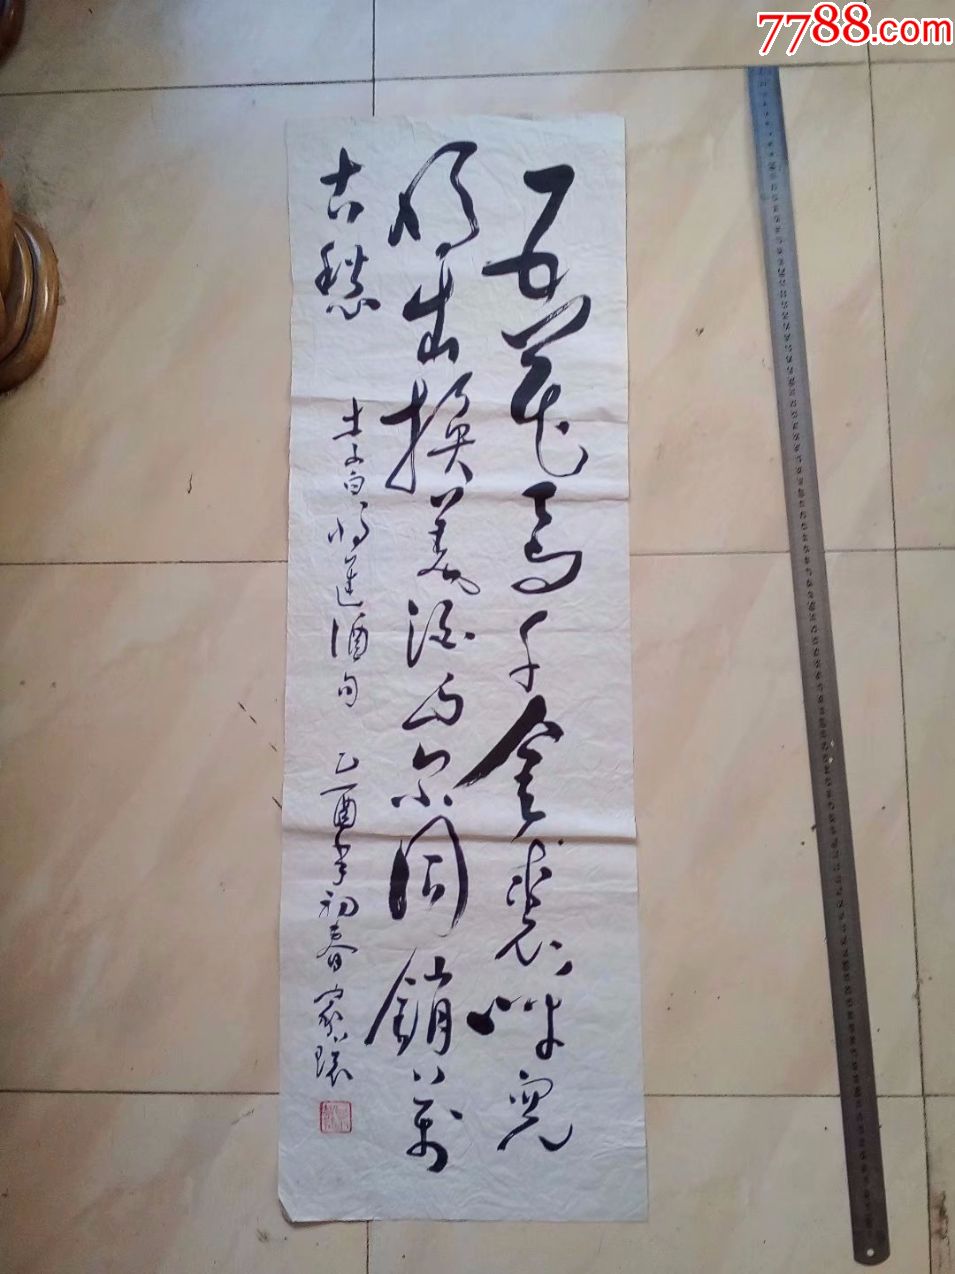 7788.com
五花馬千金裘呼兒
将出換美酒与尔同銷萬
古愁
李白将進酒句 乙酉年初春 家